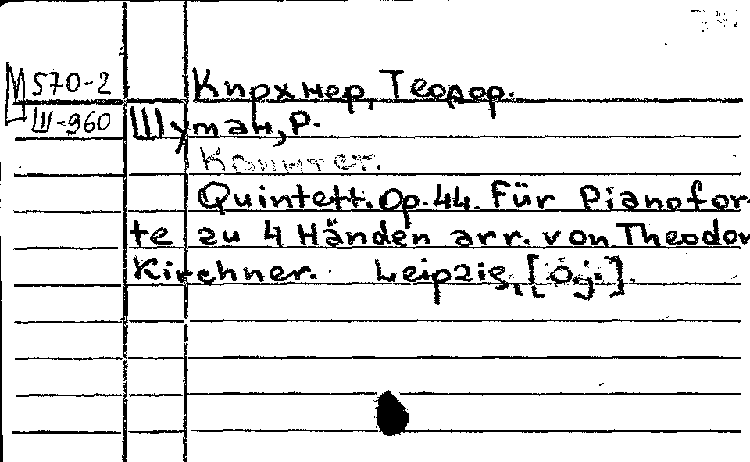 М 570-2 Кирхнер, Теодор.
Ш-960 Шуман, Р.
Квинтет.
Quintett. Op. 44. Für Pianofor-
te zu 4 Händen arr. von Theodor
Kirchner. Leipzig, [o.j.].